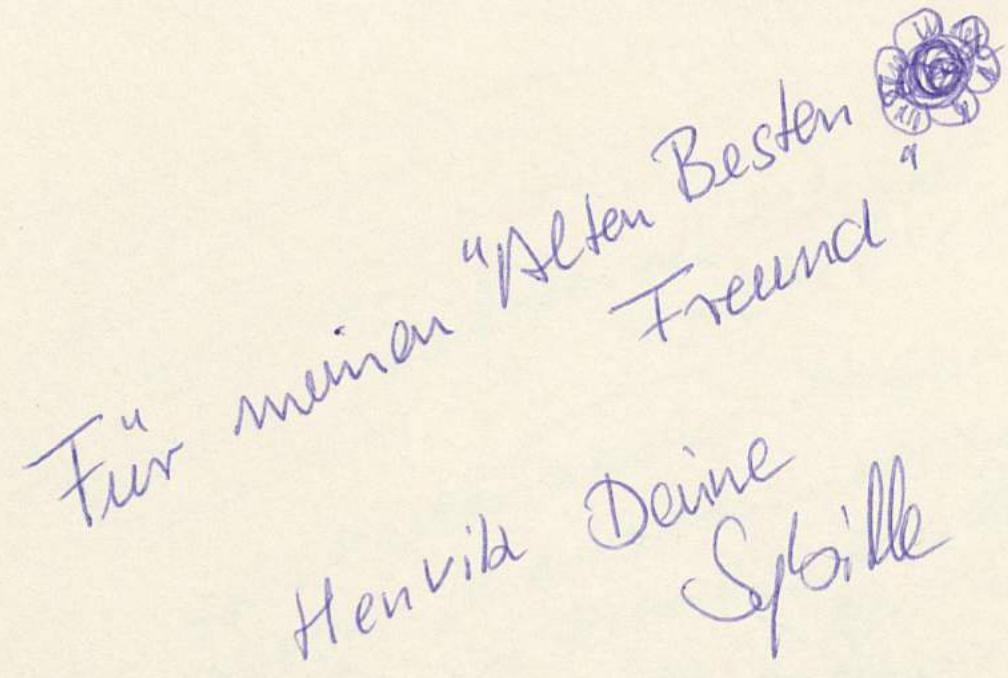 Für meinen "Alten Besten
Freund"
Henrik Deine
Sybille